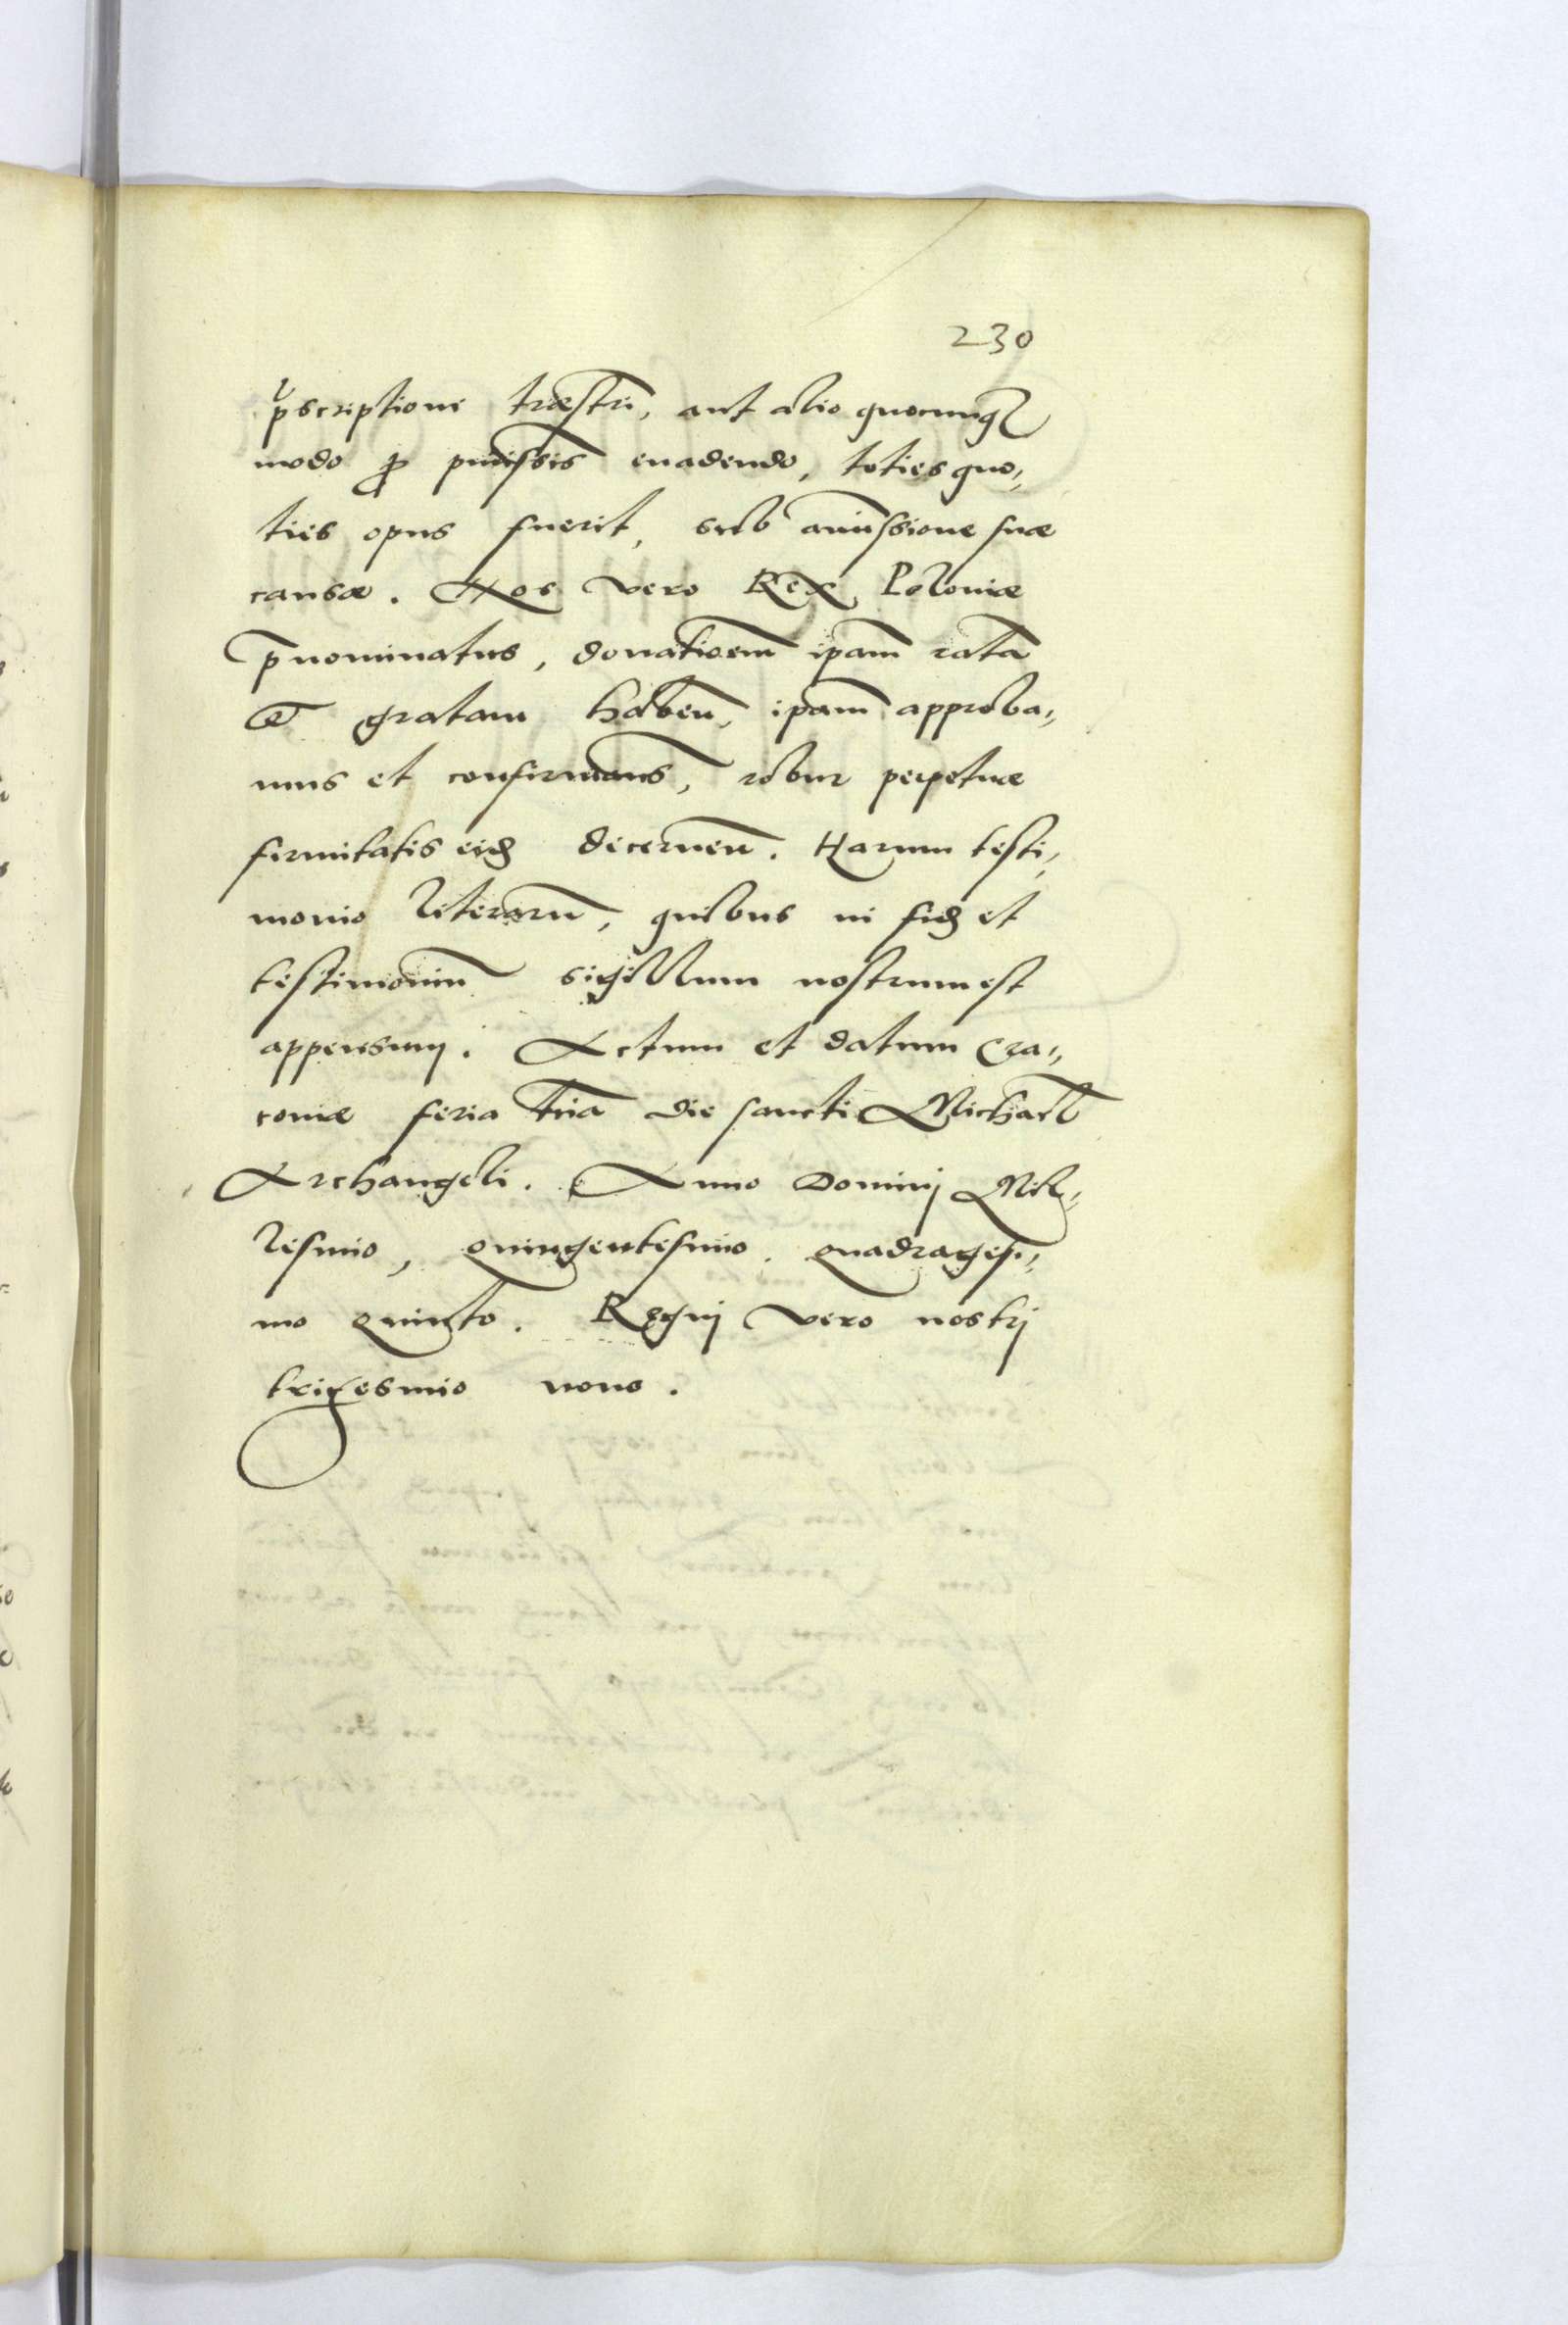 230
p̃scriptione trr̃estri, aut alio quocunq₃
modo ꝓ pmissis euadendo, toties quo,,
ties opus fuerit, sub amissione suæ
causæ. Nos vero Rex Poloniæ
p̄nominatus, donatioem̄ ipam̄ ratā
Et gratam haben̄, ipam̄ approba,,
mus et confirmams̄, robur perpetuæ
firmitatis eid₃ decernen̄. Harum testi,,
monio literarū, quibus in fid₃ et
testimoniū sigillum nostrum est
appensum. Actum et datum Cra,,
coviæ feria tr̄ia die sancti Michael̄
Archangeli. Anno Dominj Mil,,
lesimo, quingentesimo. quadragesi,,
mo quinto. Regnj vero nostrj
tricesimo nono.